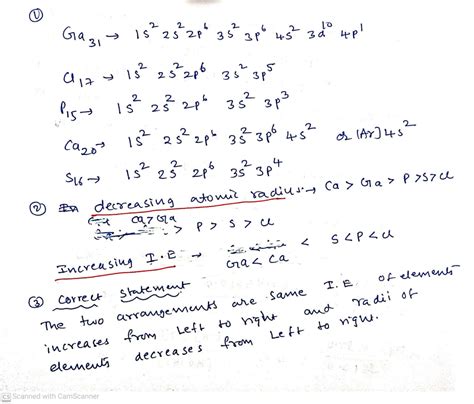 ①
Ga₃₁ → 1s² 2s² 2p⁶ 3s² 3p⁶ 4s² 3d¹⁰ 4p¹
Cl₁₇ → 1s² 2s² 2p⁶ 3s² 3p⁵
P₁₅ → 1s² 2s² 2p⁶ 3s² 3p³
Ca₂₀ → 1s² 2s² 2p⁶ 3s² 3p⁶ 4s² or [Ar] 4s²
S₁₆ → 1s² 2s² 2p⁶ 3s² 3p⁴
② decreasing atomic radius → Ca > Ga > P > S > Cl
Ca > Ga
> P > S > Cl
Increasing I.E → < S < P < Cl
Ga < Ca
③ Correct statement
The two arrangements are same I.E of elements
increases from Left to right and radii of
elements decreases from Left to right.
CS Scanned with CamScanner